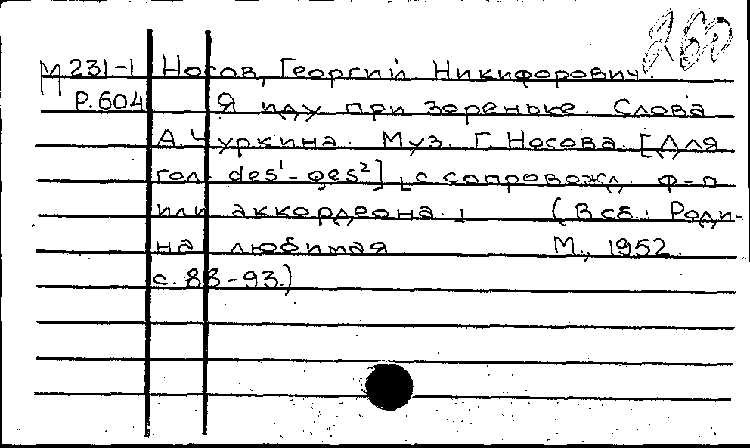 260
М 231-1 Носов, Георгий Никифорович.
Р.604 Я иду при зореньке. Слова
А. Чуркина. Муз. Г. Носова. [Для
гол. des¹-ges²] с сопровожд. ф-п
или аккордеона. (В сб.: Роди-
на любимая М., 1952
с. 88-93.)